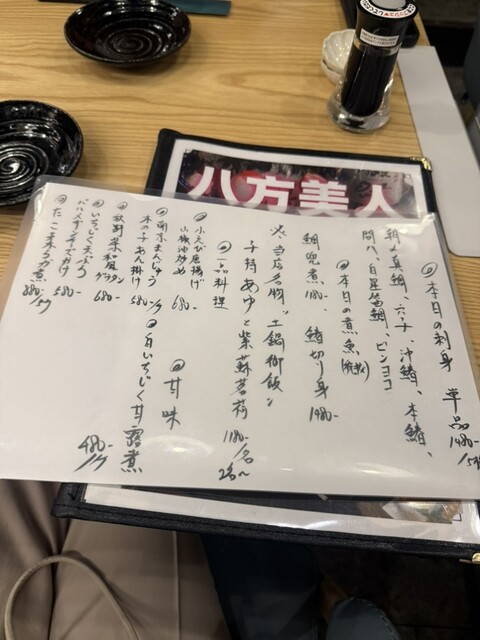 八方美人
◎本日の刺身 単品
1480-
朝〆真鯛、六子、沖鰆、本鰆、
間八、白星笛鯛、ビンヨコ
◎本日の煮魚
鯛兜煮 1180- 鰆切り身 1480-
※当店名物。土鍋御飯。
子持あゆと紫蘇茗荷
1180-/名
2名〜
◎一品料理
◎小えび唐揚げ
山椒油炒め 680-
◎南京まんじゅう
木の子あん掛け 580-/ケ
◎秋野菜和風グラタン 680-
◎いちじく天ぷら
バルサミコがけ 580-
◎たこ柔らか煮 880-/ケ
◎甘味
◎白いちじく甘露煮
480-/ケ